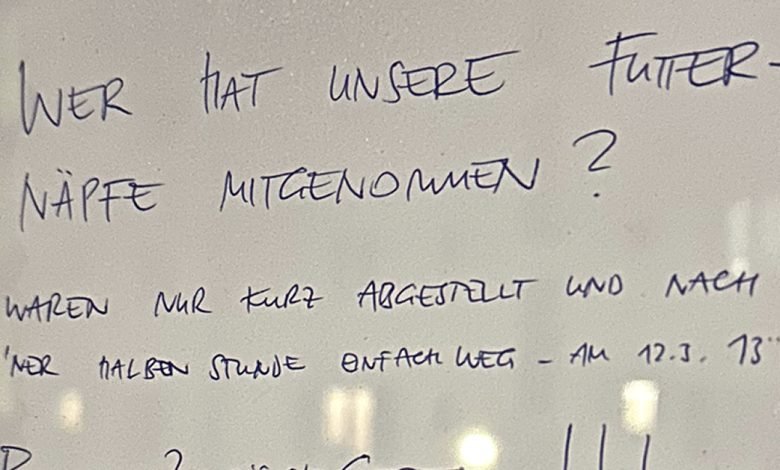 WER HAT UNSERE FUTTER-
NÄPFE MITGENOMMEN?
WAREN NUR KURZ ABGESTELLT UND NACH
'NER HALBEN STUNDE EINFACH WEG - AM 12.3. 13